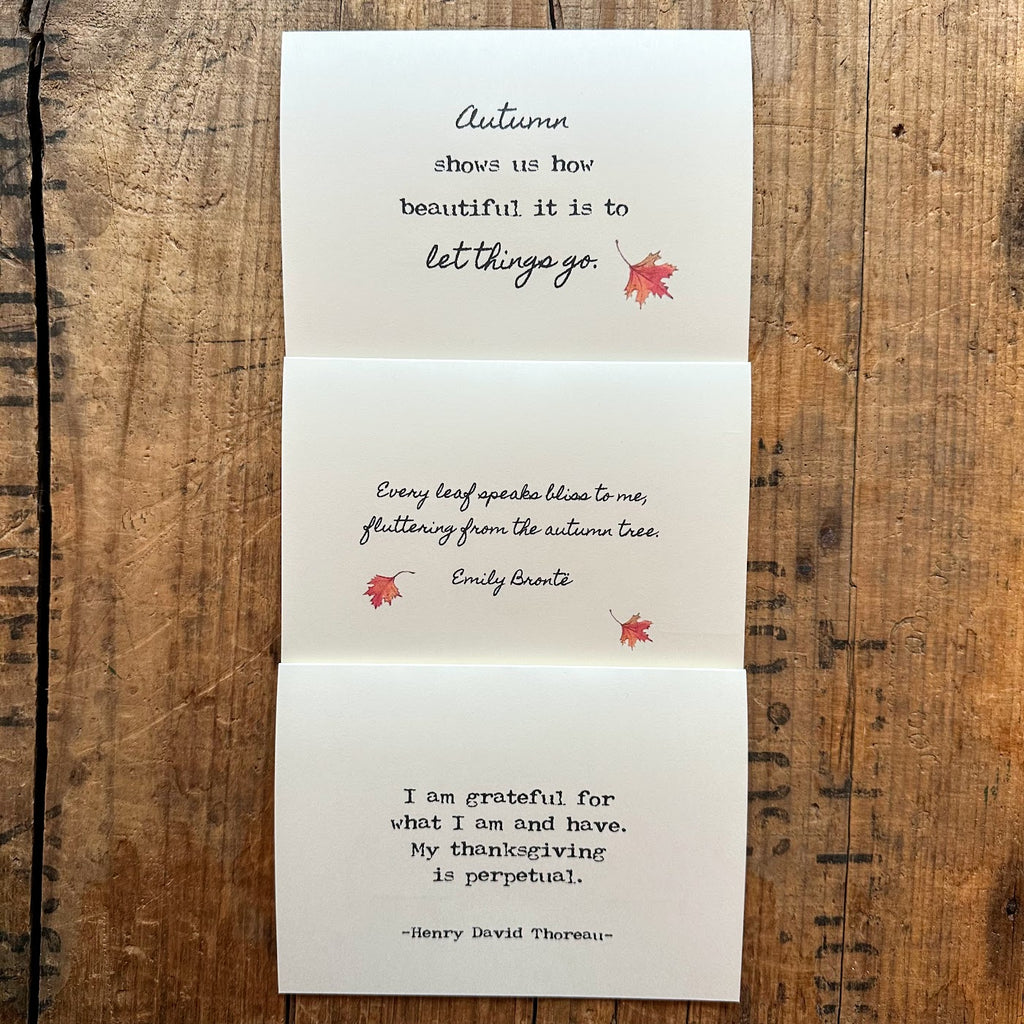 Autumn
shows us how
beautiful it is to
let things go.
Every leaf speaks bliss to me,
fluttering from the autumn tree.
Emily Brontë
I am grateful for
what I am and have.
My thanksgiving
is perpetual.
-Henry David Thoreau-